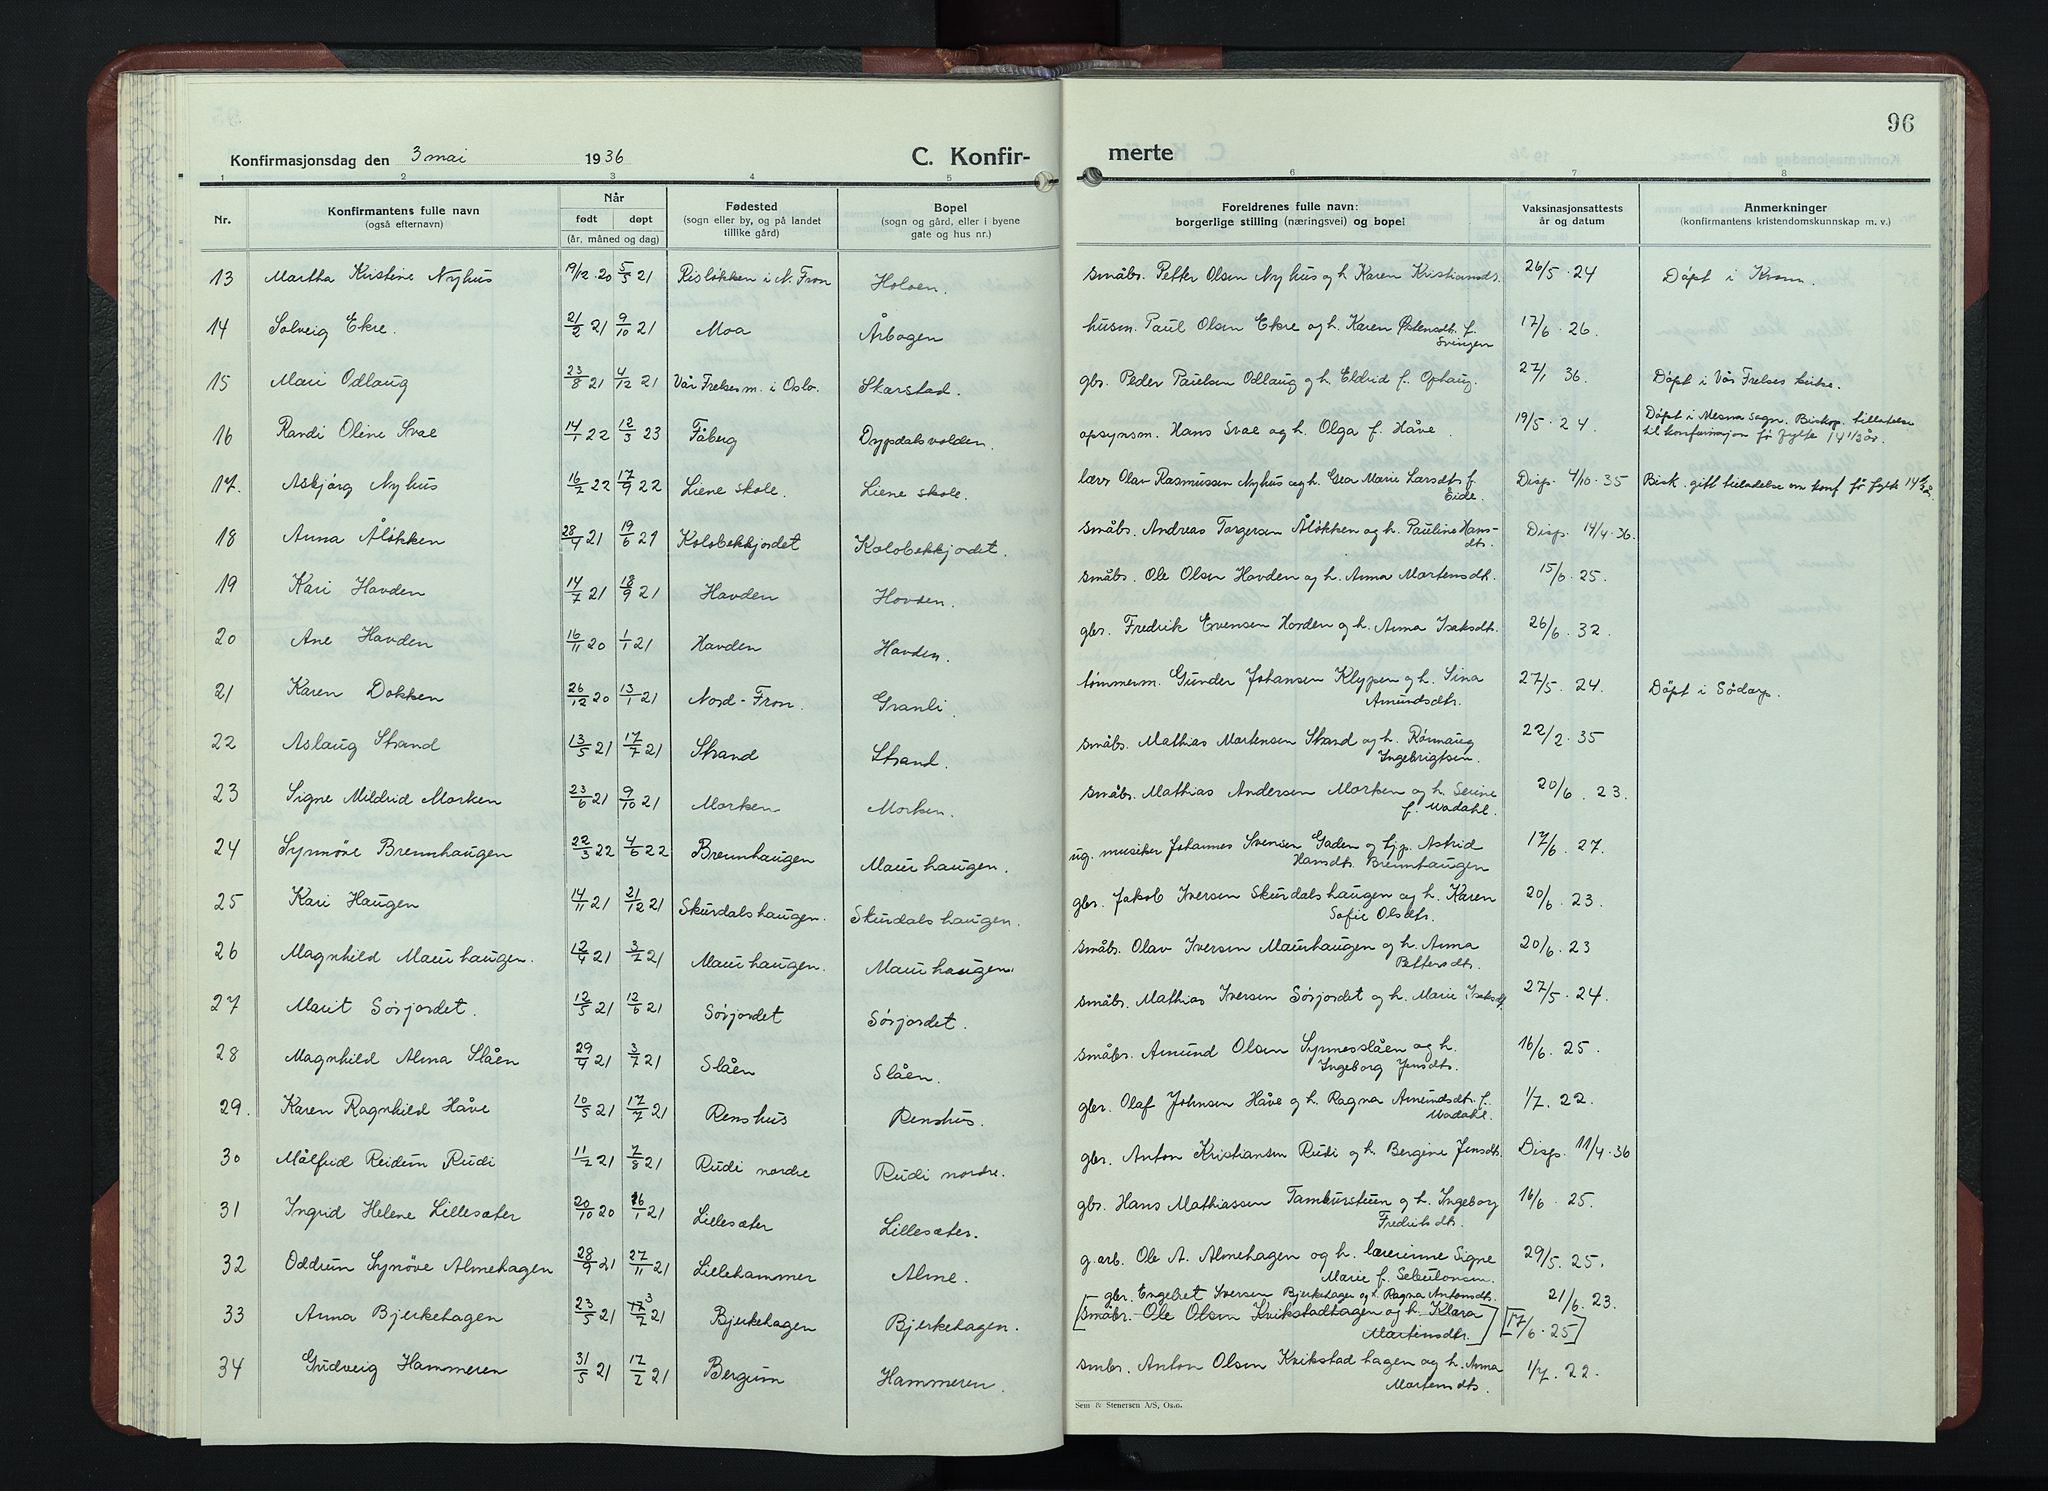 96
Konfirmasjonsdag den 3 mai 1936 C. Konfir- merte
1 2 3 4 5 6 7 8
Nr. Konfirmantens fulle navn (også efternavn) Når født døpt (år, måned og dag) Fødested (sogn eller by, og på landet tillike gård) Bopel (sogn og gård, eller i byene gate og hus nr.) Foreldrenes fulle navn: borgerlige stilling (næringsvei) og bopel Vaksinasjonsattests år og datum Anmerkninger (konfirmantens kristendomskunnskap m. v.)
13 Martha Kristine Nyhus 19/12 20 5/5 21 Risløkken i N. Fron Holoen. småbr. Petter Olsen Nyhus og h. Karen Kristiansdt. 26/5 . 24 Døpt i Kvam.
14 Solveig Ekre. 21/2 21 9/10 21 Moa Årbogen husm. Paul Olsen Ekre og h. Karen Østensdt. f. Svingen 17/6 . 26.
15 Mari Odlaug 23/8 21 4/12 21 Vår Frelsesm. i Oslo. Skarstad. gbr. Peder Paulsen Odlaug og h. Eldrid f. Ophaug. 27/1 36. Døpt i Vår Frelses kirke.
16 Randi Oline Svae 14/1 22 12/3 23 Fåberg Dypdalsvolden. opsynsm. Hans Svae og h. Olga f. Håve. 19/5 . 24. Døpt i Mesna sogn. Biskop. tillatelse
til konfirmasjon før fylte 14 1/2 år.
17. Asbjørg Nyhus 16/7 22 17/9 22 Liene skole. Liene skole. lærer Olav Rasmussen Nyhus og h. Gea Marie Larsdt. f. Eide. Disp. 4/10 . 35 Bisk. gitt tilladelse om konf før fylte 14 1/2 år.
18 Anna Åløkken 28/4 21 19/6 21 Kolobekkjordet Kolobekkjordet. småbr. Andreas Torgersen Åløkken og h. Pauline Hans-
dt. Disp. 14/4 . 36.
19 Kari Hovden 14/7 21 18/9 21 Hovden Hovden. småbr. Ole Olsen Hovden og h. Anna Martensdt. 15/6 . 25.
20 Ane Hovden 16/11 20 1/1 21 Hovden Hovden. gbr. Fredrik Evensen Hovden og h. Anna Isaksdt. 26/6 . 32.
21 Karen Dokken 26/12 20 13/1 21 Nord-Fron. Granli. tømmerm. Gunder Johansen Klypen og h. Sina
Amundsdtr. 27/5 . 24. Døpt i Sødorp.
22 Aslaug Strand 13/5 21 17/7 21 Strand Strand. småbr. Mathias Martensen Strand og h. Rønnaug
Ingebrigtsen. 22/2 . 35
23 Signe Mildrid Morken 23/6 21 9/10 21 Morken Morken. småbr. Mathias Andersen Morken og h. Serine
f. Wadahl. 20/6 . 23.
24 Synnøve Brennhaugen 22/3 22 4/6 22 Brennhaugen Maurhaugen. ug. musiker Johannes Svensen Gaden og tjp. Astrid
Hansdt. Brennhaugen 17/6 . 27.
25 Kari Haugen 14/11 21 21/12 21 Skurdalshaugen. Skurdalshaugen. gbr. Jakob Iversen Skurdalshaugen og h. Karen
Sofie Olsdtr. 20/6 . 23.
26 Magnhild Maurhaugen. 12/4 21 3/7 21 Maurhaugen. Maurhaugen. småbr. Olav Iversen Maurhaugen og h. Anna
Pettersdt. 20/6 . 23
27 Marit Sørjordet. 12/5 21 12/6 21 Sørjordet Sørjordet. småbr. Mathias Iversen Sørjordet og h. Marie Isaksdt. 27/5 . 24.
28 Magnhild Alma Slåen 29/4 21 3/7 21 Slåen Slåen. småbr. Amund Olsen Synnesslåen og h.
Ingeborg Jensdt. 16/6 . 25.
29. Karen Ragnhild Håve 10/5 21 17/7 21 Renshus Renshus. gbr. Olaf Johnsen Håve og h. Ragna Amundsdt. f.
Wadahl. 1/7. 22.
30 Målfrid Reidun Rudi 11/2 21 7/8 21 Rudi nordre Rudi nordre. gbr. Anton Kristiansen Rudi og h. Bergine Jensdt. Disp. 11/4 . 36
31 Ingrid Helene Lillesæter 20/10 20 16/1 21 Lillesæter Lillesæter. gbr. Hans Mathiassen Tamburstuen og h. Ingeborg
Fredriksdt. 16/6 . 25.
32 Oddrun Synøve Almehagen 28/9 21 27/11 21 Lillehammer Alme. g.arb. Ole A. Almehagen og h. lærerinne Signe
Marie f. Sebulonsen. 29/5 . 25.
33 Anna Bjerkehagen 23/5 21 17/7 3 21 Bjerkehagen Bjerkehagen. gbr. Engebret Iversen Bjerkehagen og h. Ragna Antonsdt. 21/6 . 23.
[småbr. Ole Olsen Kvikstadhagen og h. Klara
Martensdtr.] [17/6 . 25]
34 Gudveig Hammeren 31/5 21 17/7 21 Bergum Hammeren. smbr. Anton Olsen Kvikstadhagen og h. Anna
Martensdt. 1/7. 22.
Sem & Stenersen A/S, Oslo.